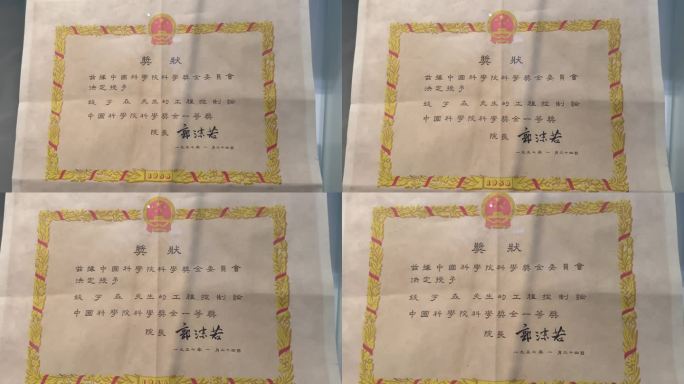 獎狀
茲據中國科學院科學獎金委員會
決定授予
錢学森 先生的工程控制論
中國科學院科學獎金一等獎
院長 郭沫若
一九五七年 一 月二十四日
1956
獎狀
茲據中國科學院科學獎金委員會
決定授予
錢学森 先生的工程控制論
中國科學院科學獎金一等獎
院長 郭沫若
一九五七年 一 月二十四日
1956
獎狀
茲據中國科學院科學獎金委員會
決定授予
錢学森 先生的工程控制論
中國科學院科學獎金一等獎
院長 郭沫若
一九五七年 一 月二十四日
獎狀
茲據中國科學院科學獎金委員會
決定授予
錢学森 先生的工程控制論
中國科學院科學獎金一等獎
院長 郭沫若
一九五七年 一 月二十四日